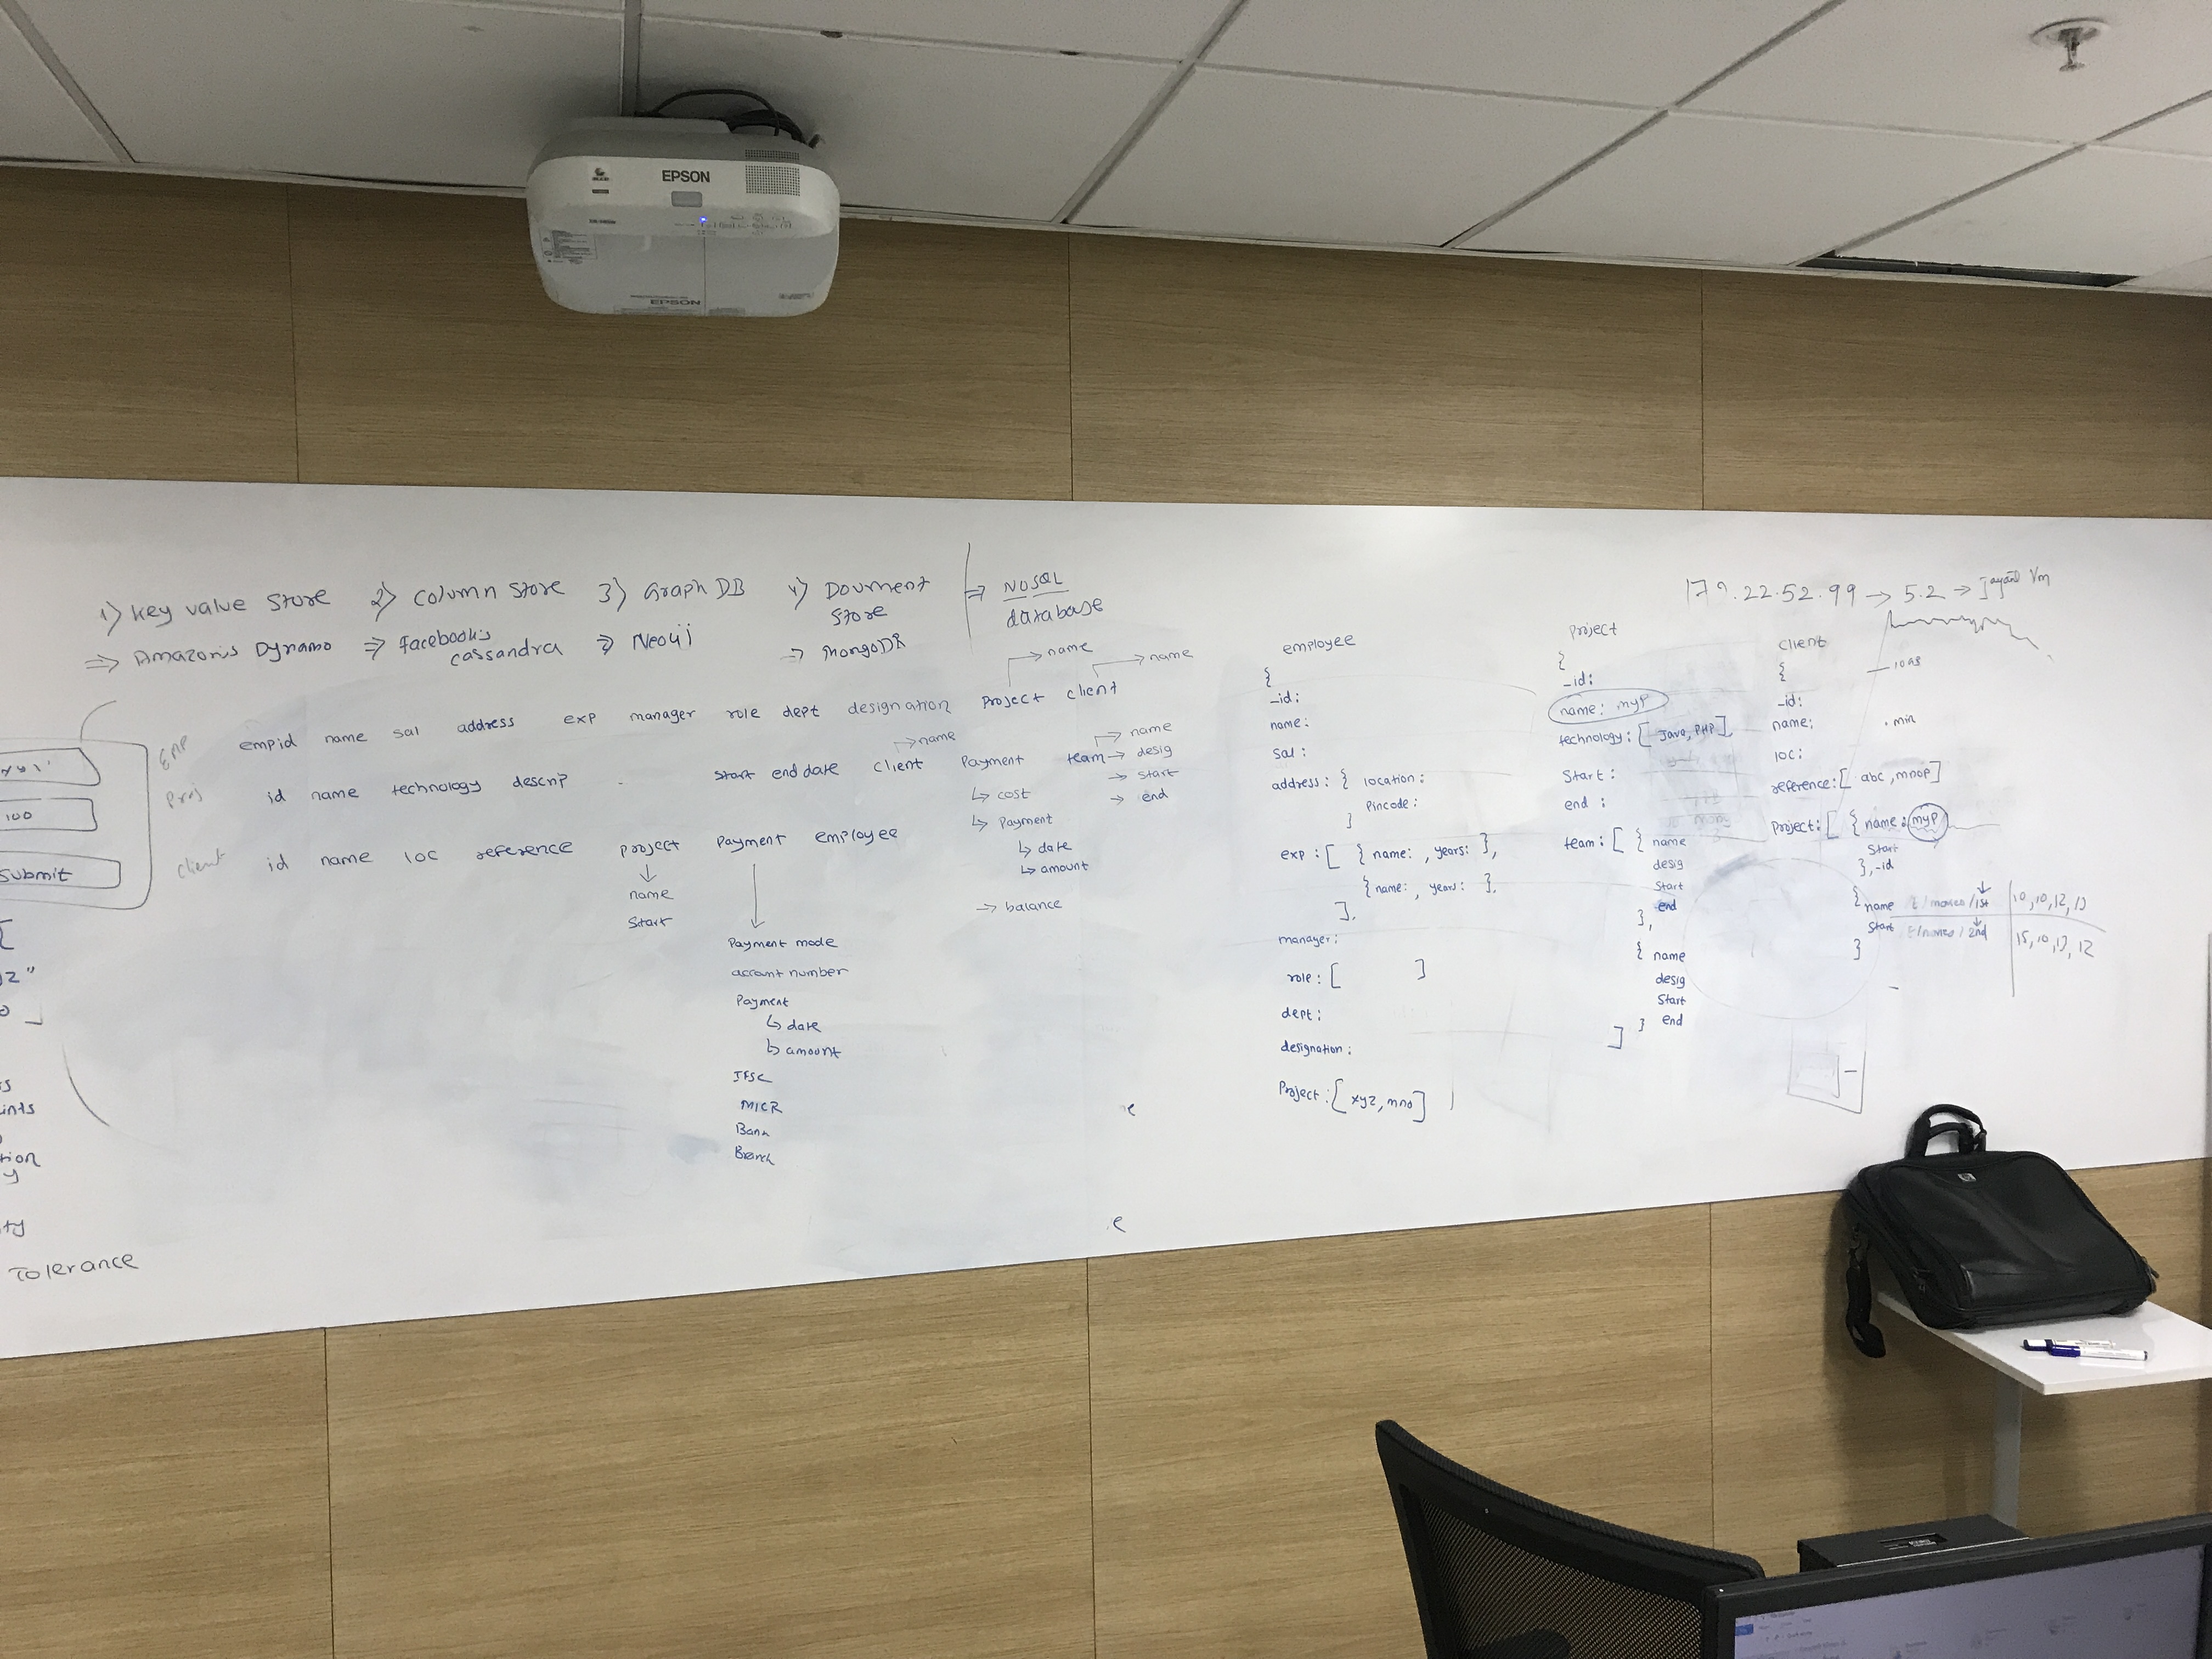 EPSON
EPSON
1) Key value Store 2) Column Store 3) Graph DB 4) Doument Store | => NOSQL database
=> Amazon's Dynamo => Facebook's Cassandra => Neo4j => MongoDB
EMP empid name sal address exp manager role dept designation Project client
-> name
-> name
Proj id name technology descrip - Start end date client Payment team
-> name
-> name
-> desig
-> start
-> end
-> cost
-> Payment
-> date
-> amount
=> balance
client id name loc reference project Payment employee
name
Start
Payment mode
account number
Payment
-> date
-> amount
IFSC
MICR
Bank
Branch
100
Submit
Tolerance
e
e
employee
{
_id:
name:
sal:
address: { location:
Pincode:
}
exp: [ { name: , years: },
{ name: , years: },
],
manager:
role: [ ]
dept:
designation:
Project: [ xyz, mno ]
Project
{
_id:
name: myP
technology: [ Java, PHP ],
Start:
end:
team: [ { name
desig
Start
end
},
{ name
desig
Start
} end
]
22.52.99 -> 5.2 -> Jayant Vm
client
{
_id:
name:
loc:
reference: [ abc, mnop ]
Project: [ { name: myP
Start
}, _id
{ name
Start
}
min
1st | 10, 10, 12, 13
2nd | 15, 10, 13, 12